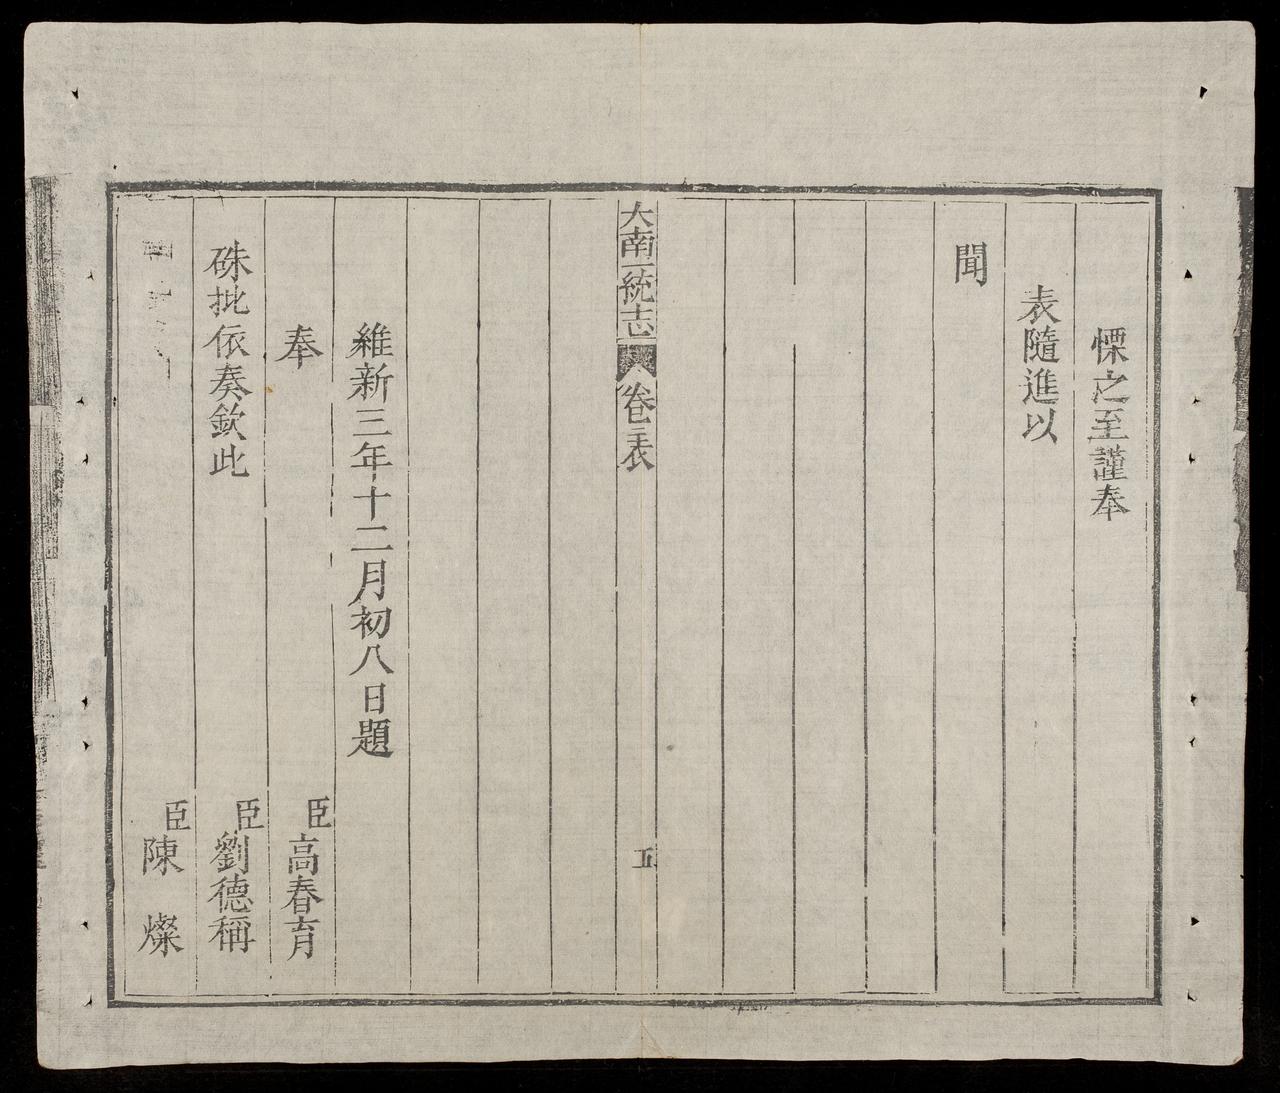 慄之至謹奉
表隨進以
聞
大南一統志 卷二表 五
維新三年十二月初八日題
奉 臣高春育
硃批依奏欽此 臣劉德稱
臣陳燦